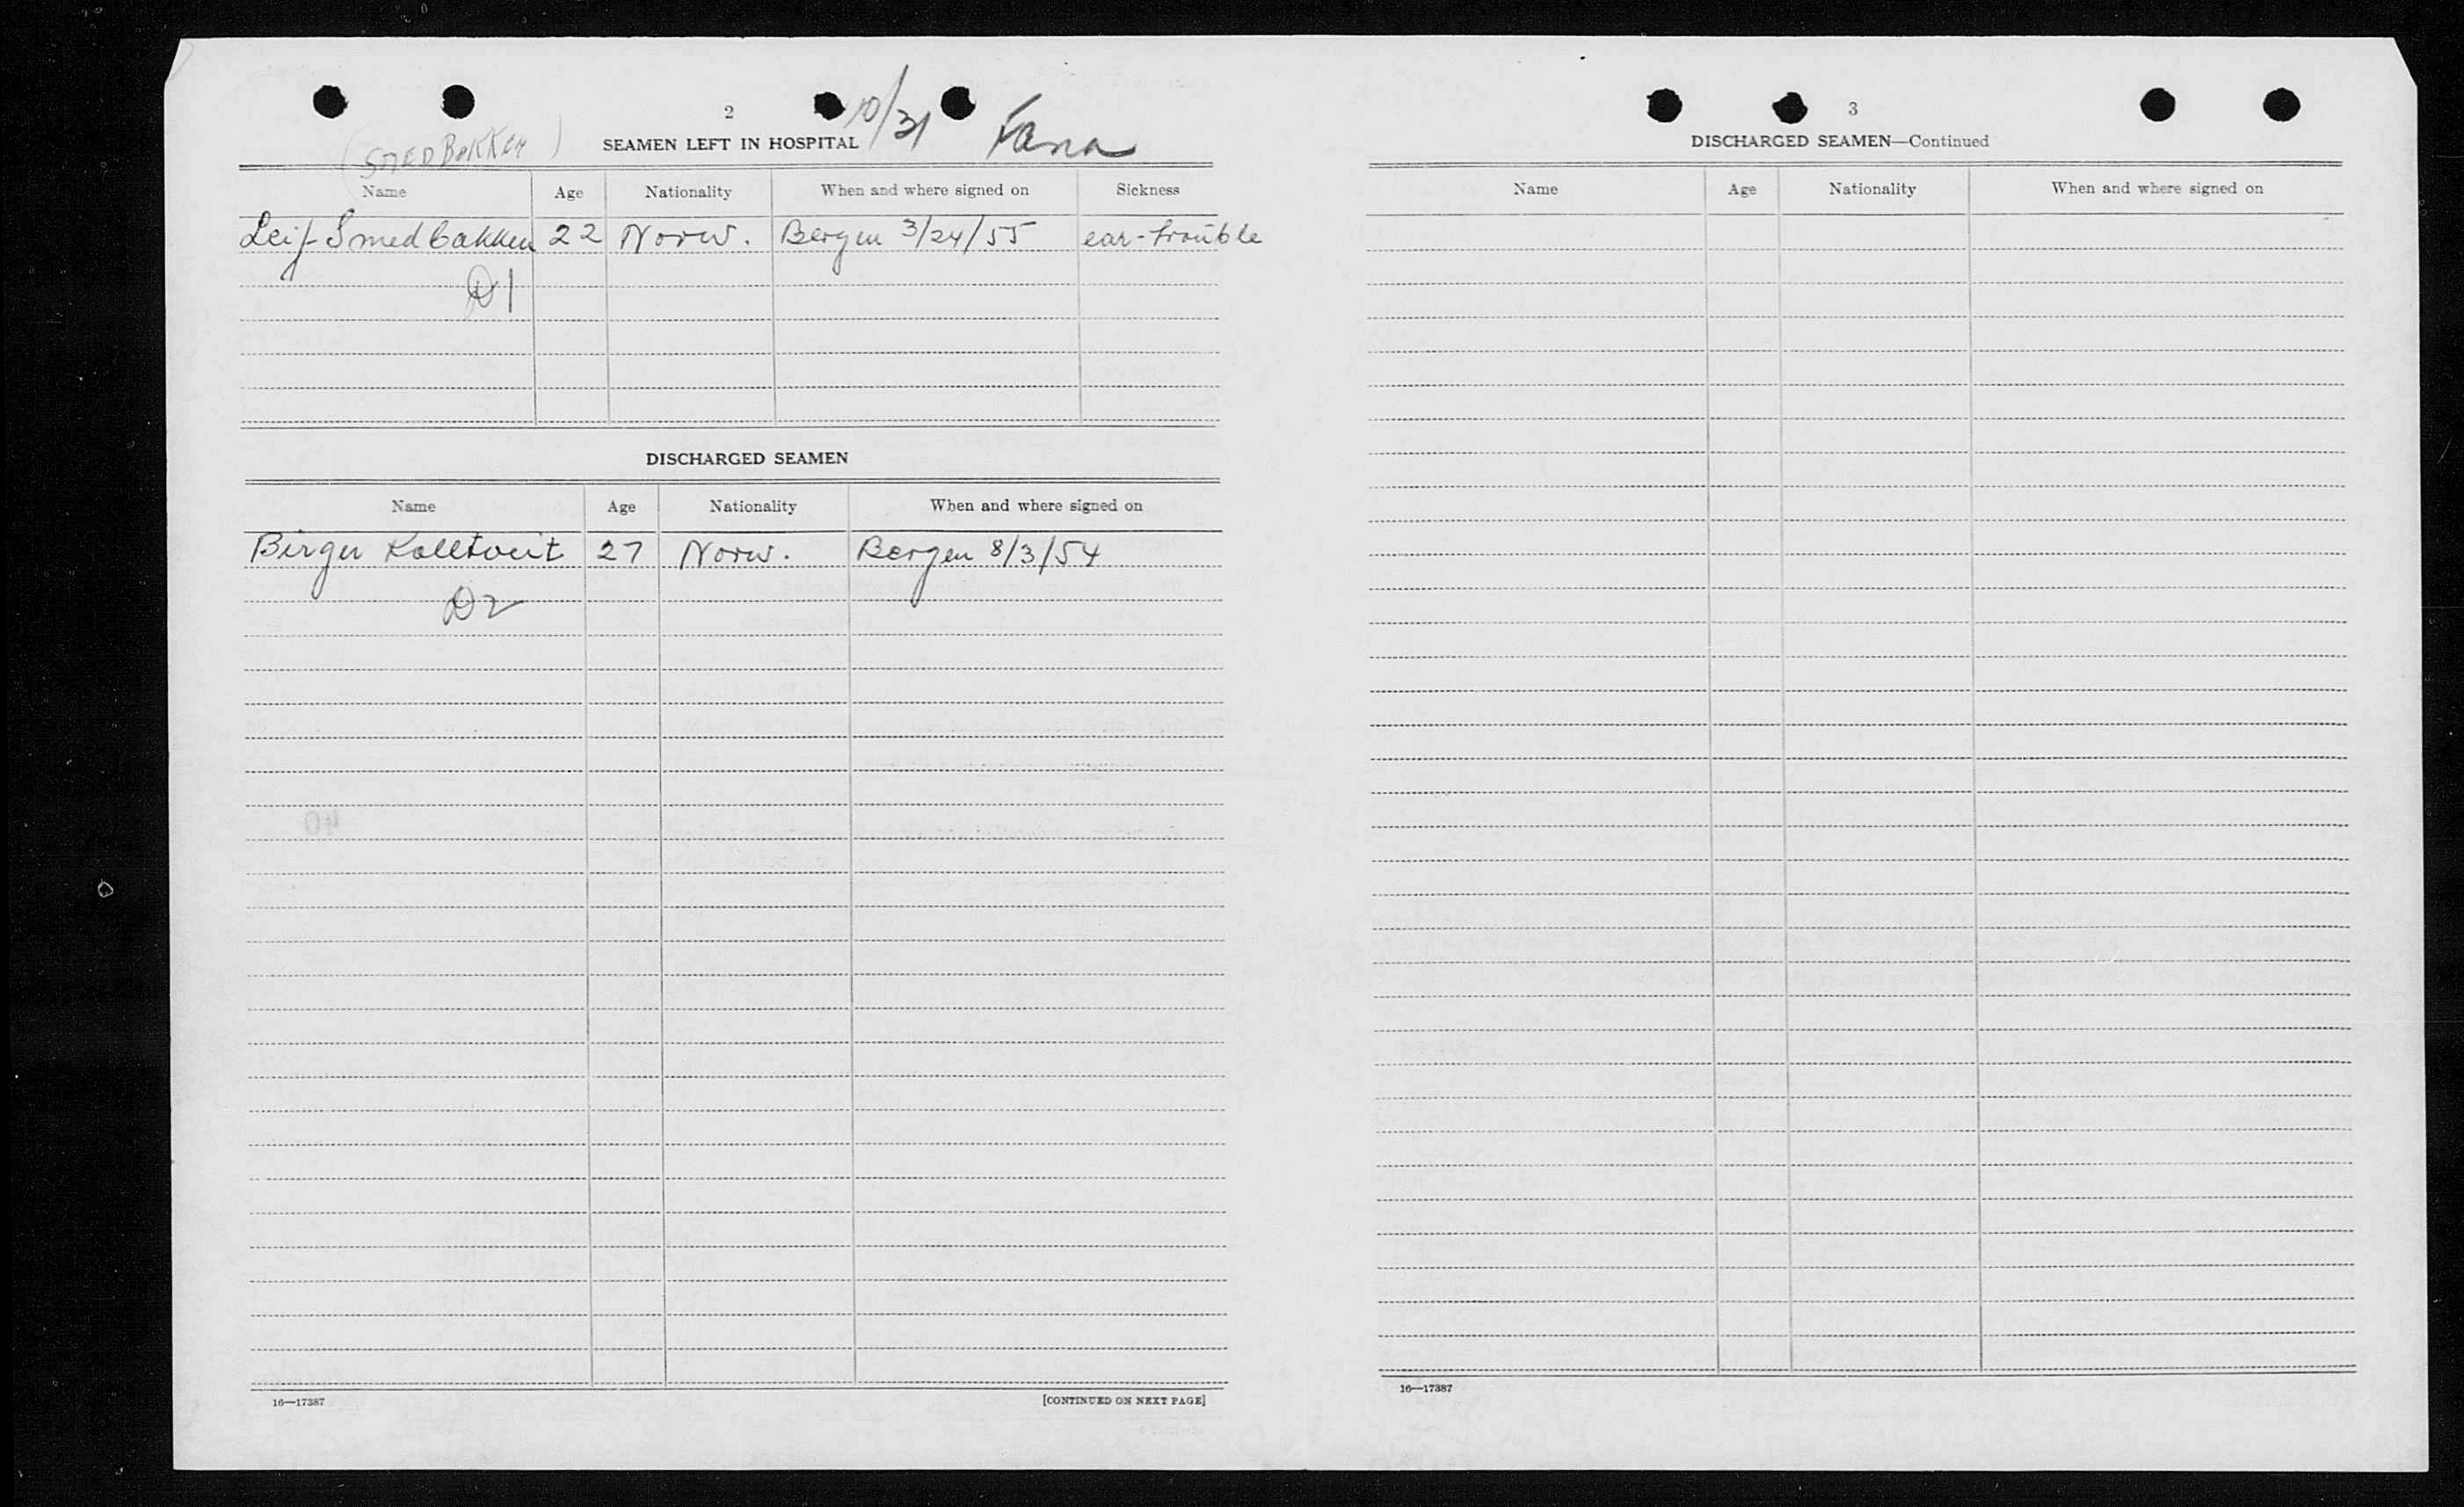 2
10/31 Fana
(SMEDBAKKEN)
SEAMEN LEFT IN HOSPITAL
Name Age Nationality When and where signed on Sickness
Leif Smedbakken 22 Norw. Bergen 3/24/55 ear-trouble
D1
DISCHARGED SEAMEN
Name Age Nationality When and where signed on
Birger Kolltveit 27 Norw. Bergen 8/3/54
D2
40
16—17387 [CONTINUED ON NEXT PAGE]
3
DISCHARGED SEAMEN—Continued
Name Age Nationality When and where signed on
16—17387